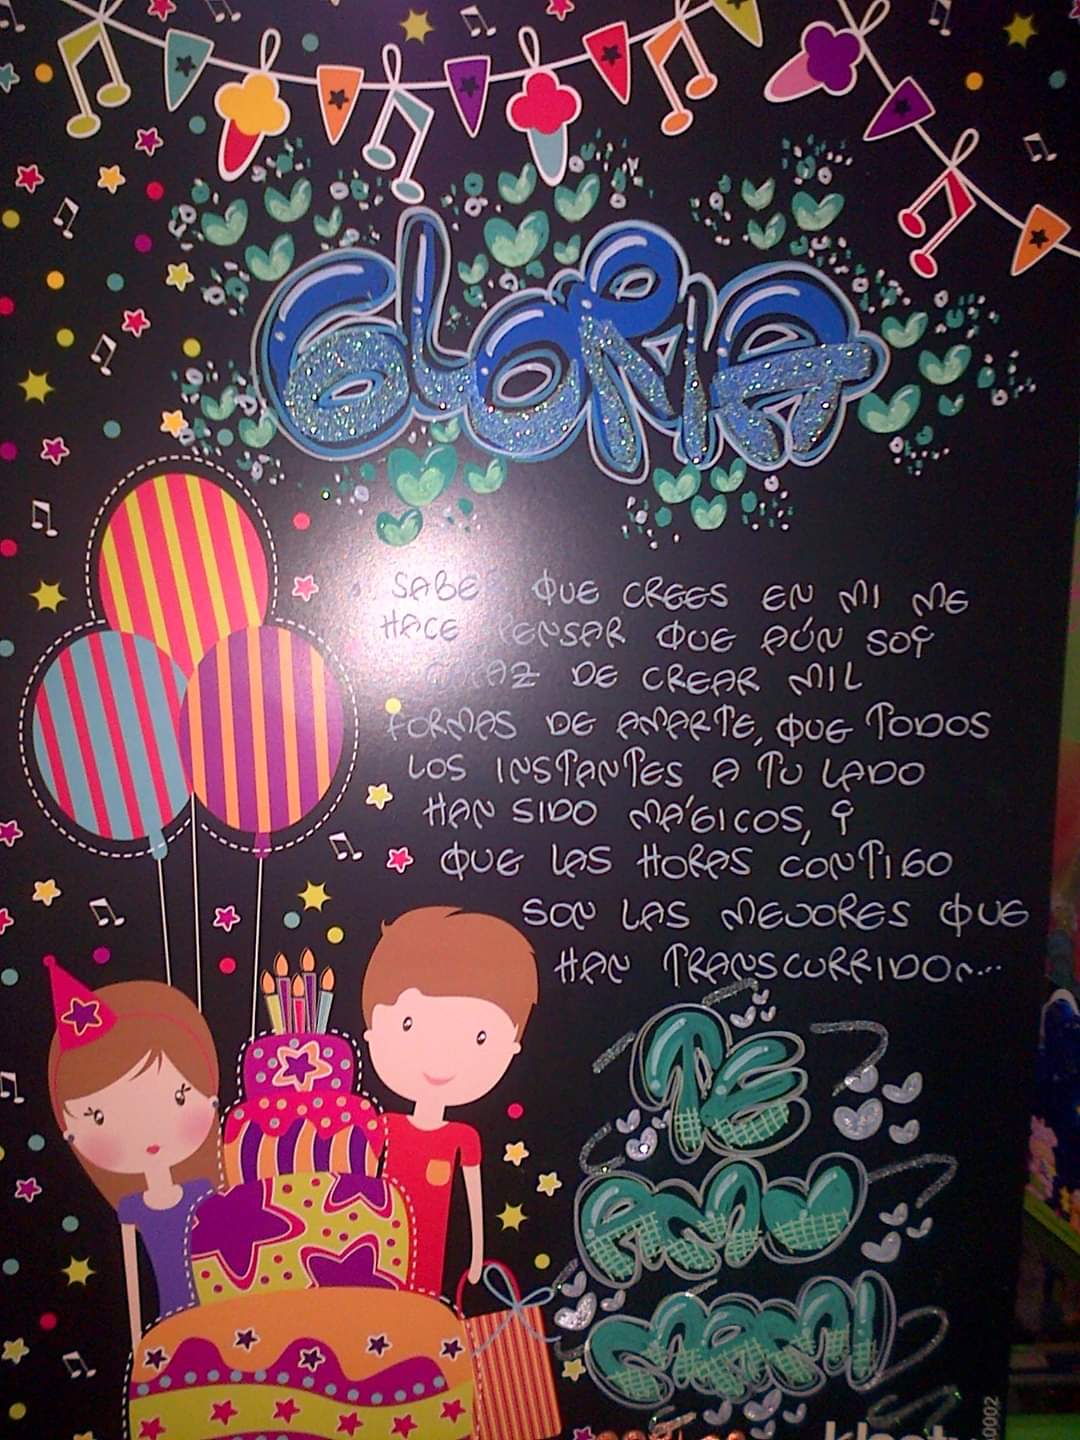 GLORIA
SABER QUE CREES EN MI ME
HACE PENSAR QUE AÚN SOY
CAPAZ DE CREAR MIL
FORMAS DE AMARTE, QUE TODOS
LOS INSTANTES A TU LADO
HAN SIDO MÁGICOS, Y
QUE LAS HORAS CONTIGO
SON LAS MEJORES QUE
HAN TRANSCURRIDO...
TE
AMO
MAMI
0002